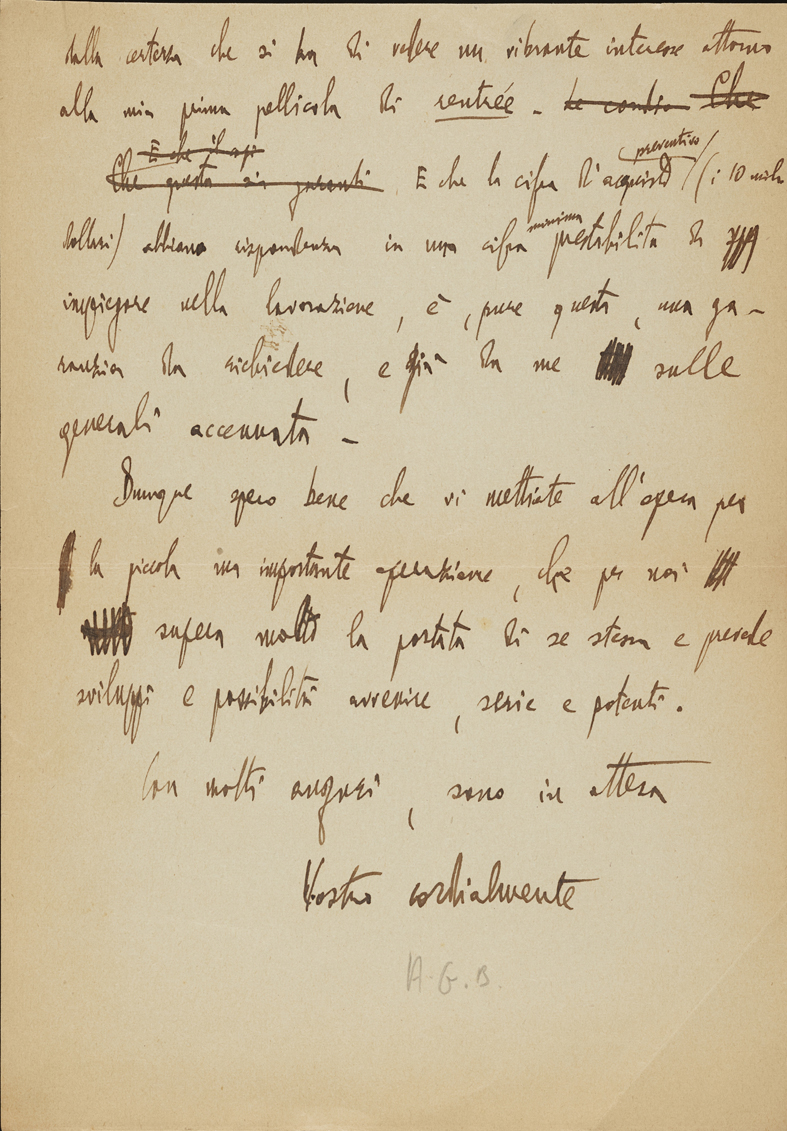 dalla certezza che si ha di vedere un vibrante interesse attorno
alla mia prima pellicola di rentrée - Le condiz Che
E che il
Che questa sia garanti E che la cifra d'acquisto preventivo (i 10 mila
dollari) abbiano rispondenza in una cifra minima prestabilita da
impiegare nella lavorazione, è, pure questa, una ga-
ranzia da richiedere, e già da me sulle
generali accennata -
Dunque spero bene che vi mettiate all'opera per
la piccola ma importante operazione, che per noi
supera molto la portata di se stessa e prevede
sviluppi e possibilità avvenire, serie e potenti.
Con molti auguri, sono in attesa
Vostro cordialmente
A. G. B.